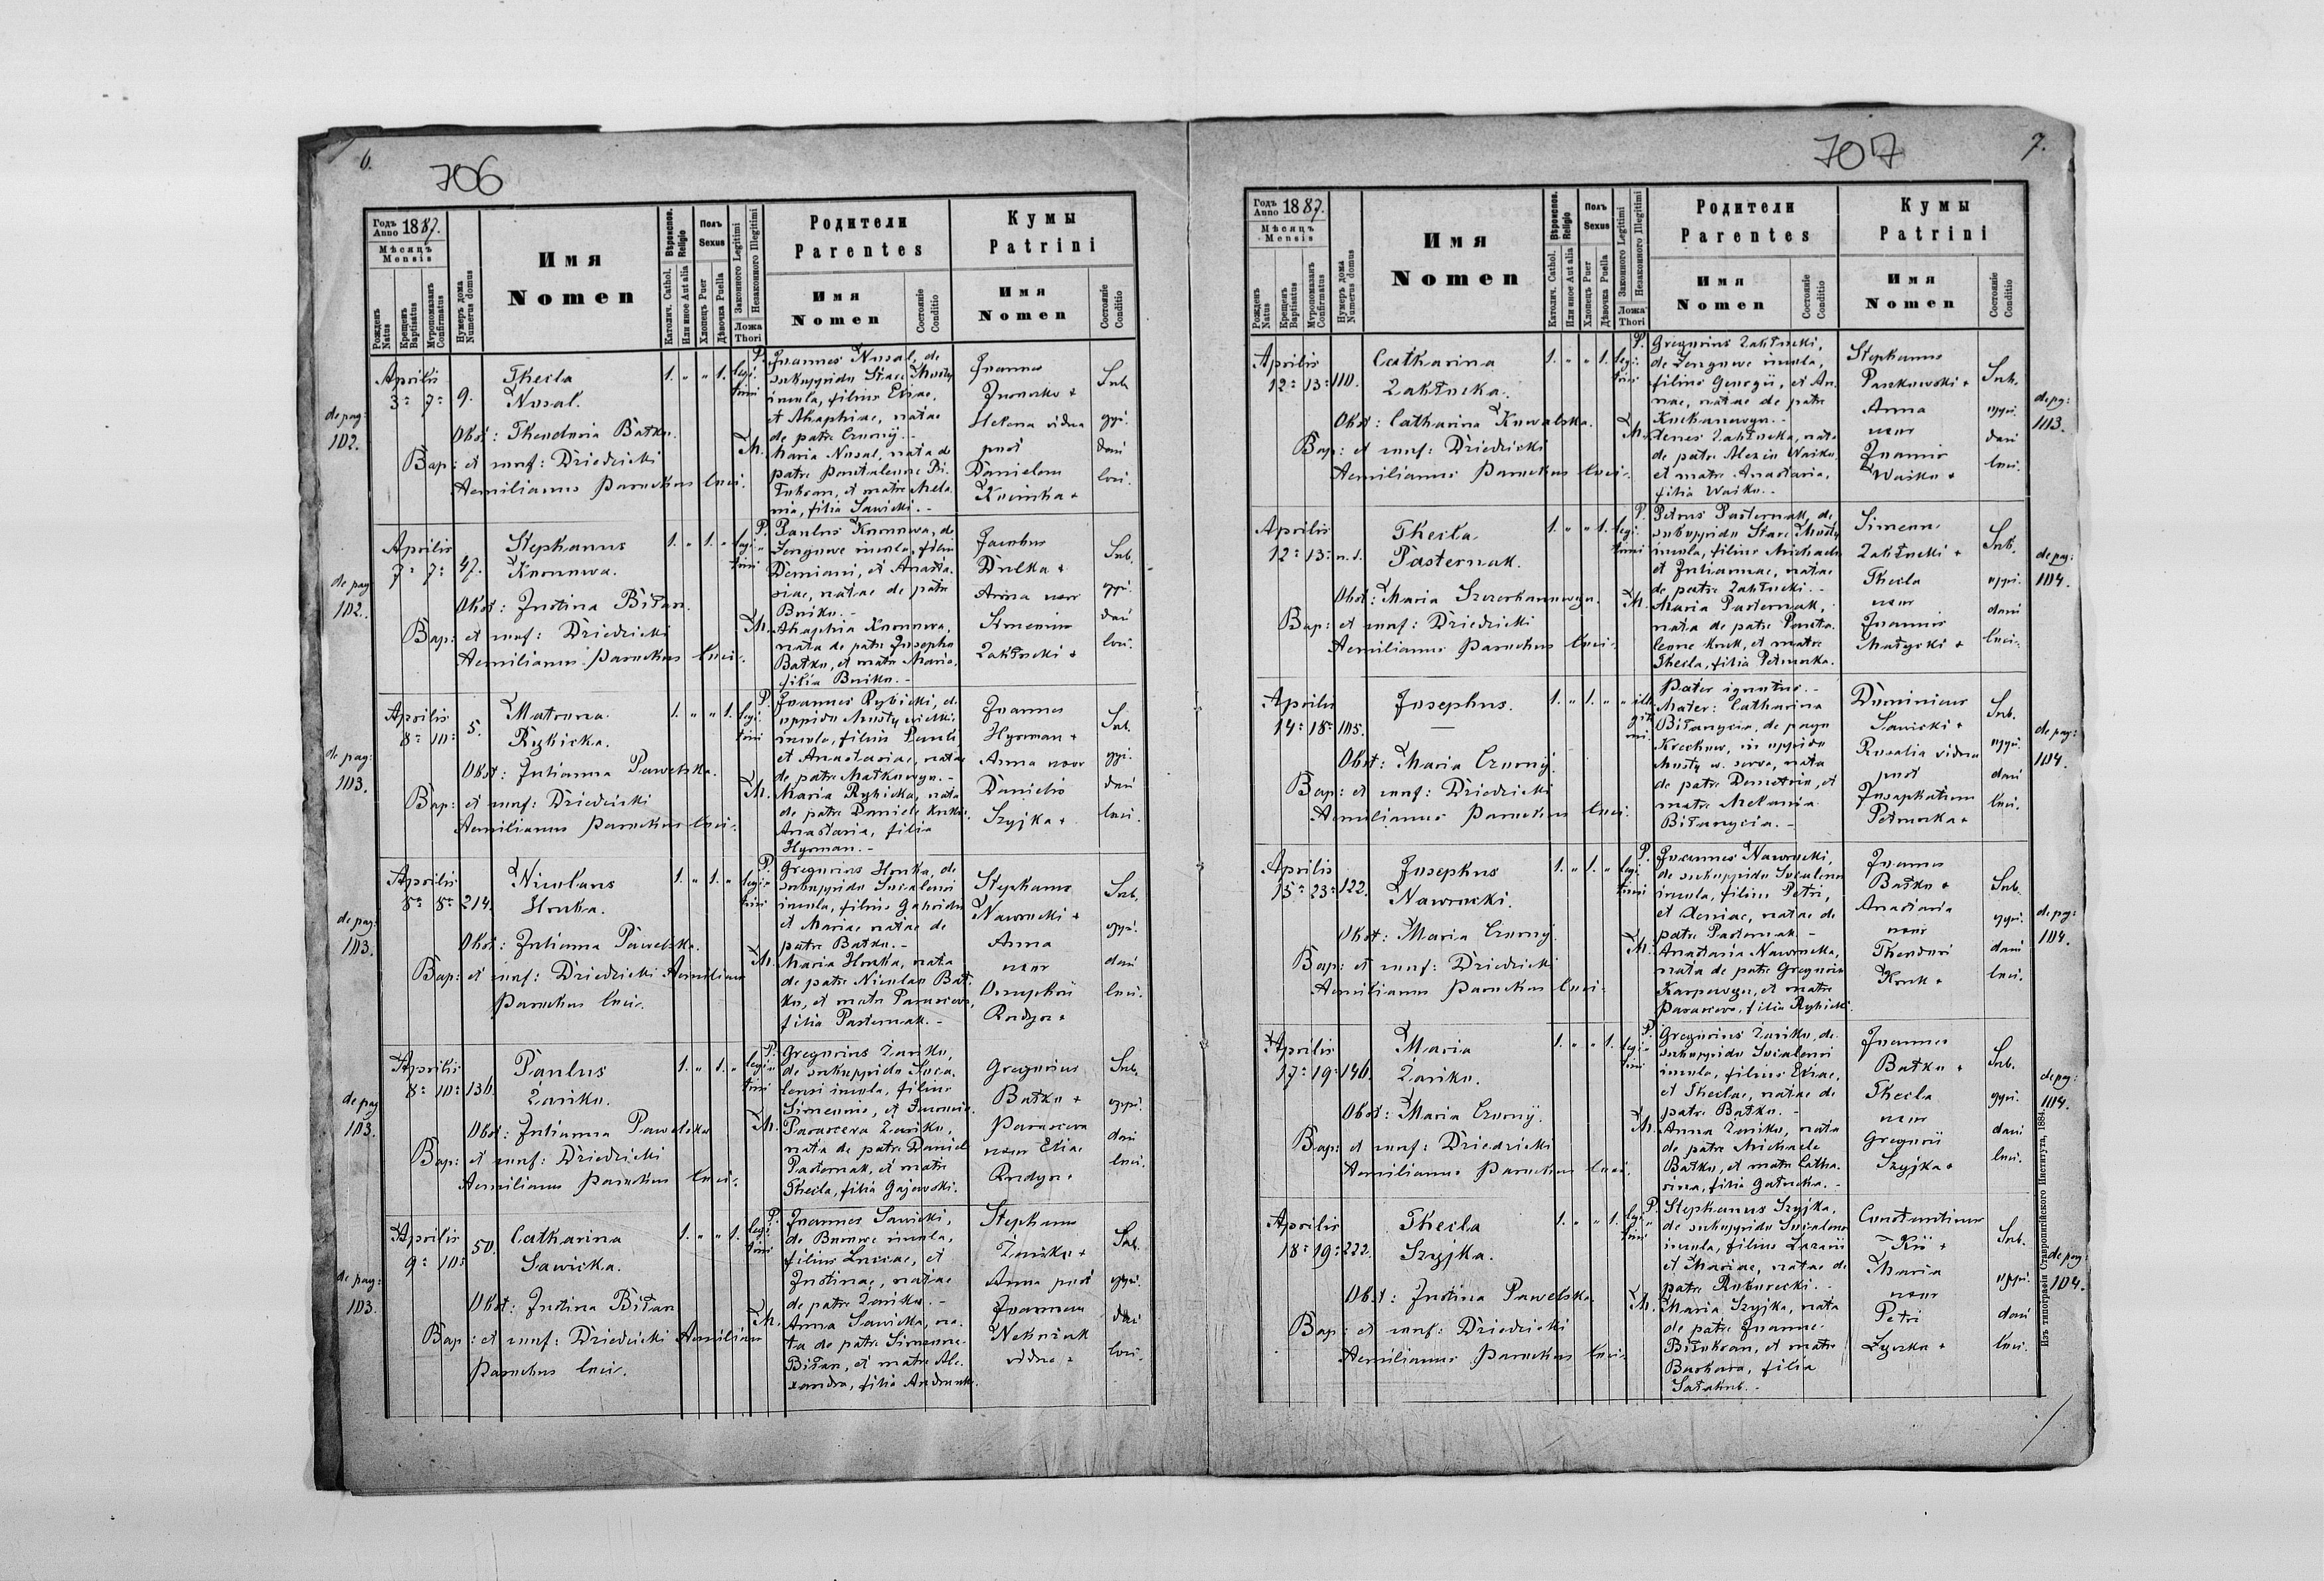 6.
706
Годъ Anno 1887.
Мѣсяцъ Mensis
Рожденъ Natus
Крещенъ Baptisatus
Мѵропомазанъ Confirmatus
Нумеръ дома Numerus domus
Имя
Nomen
Вѣроиспов. Religio
Католич. Cathol.
Или иное Aut alia
Полъ Sexus
Хлопецъ Puer
Дѣвочка Puella
Законного Legitimi
Незаконного Illegitimi
Ложа Thori
Родители
Parentes
Имя
Nomen
Состояніе Conditio
Кумы
Patrini
Имя
Nomen
Состояніе Conditio
de pag: 102.
Aprilis
3: 7: 9.
Thecla
Nosal.
1. " " 1. legitimi
Obst: Theodoria Batko.
Bap: et conf: Dziedzicki
Aemilianus Parochus loci.
P. Joannes Nosal, de
suboppido Stare Mosty
incola, filius Eliae,
et Ahaphiae, natae
de patre Czorny. -
M. Maria Nosal, nata de
patre Pantaleone
et matre Mela
nia, filia Sawicki. -
Joannes
Helena vidua
post
Danielem
Sub
oppi
dani
loci.
de pag: 102.
Aprilis
7: 7: 47.
Stephanus
Konowa.
1. " 1. " legitimi
Obst: Justina Bitan.
Bap: et conf: Dziedzicki
Aemilianus Parochus loci.
P. Paulus Konowa, de
incola, filius
Demiani, et Anasta
siae, natae de patre
Boiko. -
M. Ahaphia Konowa,
nata de patre Josepho
Batko, et matre Maria,
filia Boiko. -
Jacobus
Dulka +
Anna uxor
Simeonis
Zakłucki +
Sub
oppi
dani
loci.
de pag: 103.
Aprilis
8: 10: 5.
Matrona
Rybicka.
1. " " 1. legitimi
Obst: Julianna Pawelska.
Bap: et conf: Dziedzicki
Aemilianus Parochus loci.
P. Joannes Rybicki, de
oppido Mosty wielkie
incola, filius Pauli
et Anastasiae, natae
de patre Matkowyn. -
M. Maria Rybicka, nata
de patre Daniele
Anastasia, filia
Hyrman. -
Joannes
Hyrman +
Anna uxor
Danielis
Szyjka +
Sub
oppi
dani
loci.
de pag: 103.
Aprilis
8: 8: 214.
Nicolaus
Honka.
1. " 1. " legitimi
Obst: Julianna Pawelska.
Bap: et conf: Dziedzicki Aemilianus
Parochus loci.
P. Gregorius Honka, de
suboppido Socalensi
incola, filius
et Mariae natae de
patre Batko. -
M. Maria Honka, nata
de patre Nicolao Bat
ko, et matre Parasceva,
filia Pasternak. -
Stephanus
Nawrocki +
Anna
uxor
Onuphrii
Sub
oppi
dani
loci.
de pag: 103.
Aprilis
8: 10: 136.
Paulus
Zariko.
1. " 1. " legitimi
Obst: Julianna Pawelska
Bap: et conf: Dziedzicki
Aemilianus Parochus loci.
P. Gregorius Zariko,
de suboppido Soca
lensi incola, filius
Simeonis, et
M. Parasceva Zariko,
nata de patre Daniele
Pasternak, et matre
Thecla, filia Gajewski.
Gregorius
Batko +
Parasceva
uxor Eliae
Sub
oppi
dani
loci.
de pag: 103.
Aprilis
9: 10: 50.
Catharina
Sawicka.
1. " " 1. legitimi
Obst: Justina Bitan
Bap: et conf: Dziedzicki Aemilianus
Parochus loci.
P. Joannes Sawicki,
de incola,
filius Lucae, et
Justinae, natae
de patre Zariko. -
M. Anna Sawicka, na
ta de patre Simeone
Bitan, et matre Ale
xandra, filia
Stephanus
Zariko +
Anna post
Joannem
vidua +
Sub
oppi
dani
loci.
707
7.
Годъ Anno 1887.
Мѣсяцъ Mensis
Рожденъ Natus
Крещенъ Baptisatus
Мѵропомазанъ Confirmatus
Нумеръ дома Numerus domus
Имя
Nomen
Вѣроиспов. Religio
Католич. Cathol.
Или иное Aut alia
Полъ Sexus
Хлопецъ Puer
Дѣвочка Puella
Законного Legitimi
Незаконного Illegitimi
Ложа Thori
Родители
Parentes
Имя
Nomen
Состояніе Conditio
Кумы
Patrini
Имя
Nomen
Состояніе Conditio
Aprilis
12: 13: 110.
Catharina
Zakłucka.
1. " " 1. legitimi
Obst: Catharina Kowalska.
Bap: et conf: Dziedzicki
Aemilianus Parochus loci.
P. Gregorius Zakłucki,
de incola,
filius Georgii, et An
nae, natae de patre
Kochanowyn. -
M. Xenes Zakłucka, nata
de patre Alexio Waiko,
et matre Anastasia,
filia Waiko. -
Stephanus
Paszkowski +
Anna
uxor
Joannis
Waiko +
Sub
oppi
dani
loci.
de pag: 103.
Aprilis
12: 13: n. d.
Thecla
Pasternak.
1. " " 1. legitimi
Obst: Maria
Bap: et conf: Dziedzicki
Aemilianus Parochus loci.
P. Petrus Pasternak, de
suboppido Stare Mosty
incola, filius Michaelis
et Juliannae, natae
de patre Zakłucki. -
M. Maria Pasternak,
nata de patre Panta
leone Kruk, et matre
Thecla, filia Petruska.
Simeon
Zakłucki +
Thecla
uxor
Joannis
Matyski +
Sub
oppi
dani
loci.
de pag: 104.
Aprilis
14: 18: 105.
Josephus.
1. " 1. " illegitimi
Obst: Maria Czorny.
Bap: et conf: Dziedzicki
Aemilianus Parochus loci.
Pater ignotus. -
Mater: Catharina
Bitanycia, de pago
Krechow, in oppido
Mosty w. serva, nata
de patre Demetrio, et
matre Melania
Bitanycia. -
Dominicus
Sawicki +
Rosalia vidua
post
Josaphatum
Petruska +
Sub
oppi
dani
loci.
de pag: 104.
Aprilis
15: 23: 122.
Josephus
Nawrocki.
1. " 1. " legitimi
Obst: Maria Czorny.
Bap: et conf: Dziedzicki
Aemilianus Parochus loci.
P. Joannes Nawrocki,
de suboppido Socalensi
incola, filius Petri,
et Xeniae, natae de
patre Pasternak -
M. Anastasia Nawrocka,
nata de patre Gregorio
Karpowyn, et matre
Parasceva, filia Rybicki.
Joannes
Batko +
Anastasia
uxor
Theodori
Kruk +
Sub
oppi
dani
loci.
de pag: 104.
Aprilis
17: 19: 146.
Maria
Zariko.
1. " " 1. legitimi
Obst: Maria Czorny.
Bap: et conf: Dziedzicki
Aemilianus Parochus loci.
P. Gregorius Zariko, de
suboppido Socalensi
incola, filius Eliae,
et Theclae, natae de
patre Batko. -
M. Anna Zariko, nata
de patre Michaele
Batko, et matre Catha
rina, filia Gatucka. -
Joannes
Batko +
Thecla
uxor
Gregorii
Szyjka +
Sub
oppi
dani
loci.
de pag: 104.
Aprilis
18: 19: 222.
Thecla
Szyjka.
1. " " 1. legitimi
Obst: Justina Pawelska.
Bap: et conf: Dziedzicki
Aemilianus Parochus loci.
P. Stephanus Szyjka,
de suboppido Socalensi
incola, filius Lazarii
et Mariae, natae de
patre
M. Maria Szyjka, nata
de patre Joanne
et matre
Barbara, filia
Constantinus
Kii +
Maria
uxor
Petri
Sub
oppi
dani
loci.
de pag: 104.
Изъ типографіи Ставропигійского Института, 1884.